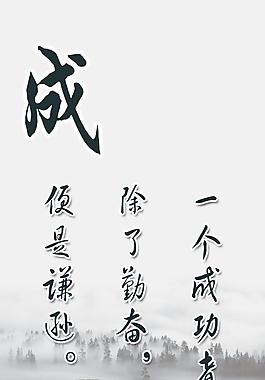 成
一个成功者
除了勤奋，
便是谦逊。